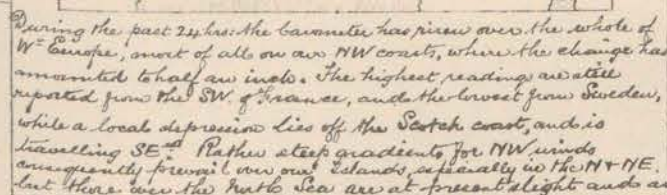 During the past 24 hrs: the barometer has risen over the whole of
Wn Europe, most of all on our NW coasts, where the change has
amounted to half an inch. The highest reading are still
reported from the SW. of France, and the lowest from Sweden,
while a local depression lies off the Scotch coast, and is
travelling SEwd Rather steep gradients for NW winds
consequently prevail over our Islands, especially in the N & NE,
but those over the North Sea are at present slight and